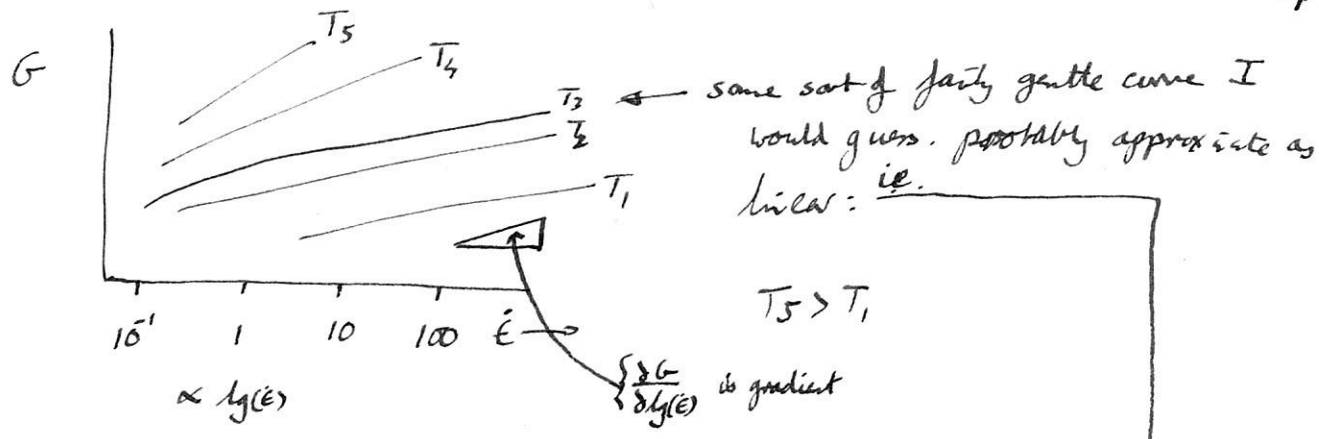 T5
G
T4
T3 ← some sort of fairly gentle curve I
T2
would guess. probably approximate as
T1
linear: ie.
T5 > T1
10⁻¹ 1 10 100 ε̇ →
{∂G/∂lg(ε̇) is gradient
∝ lg(ε̇)